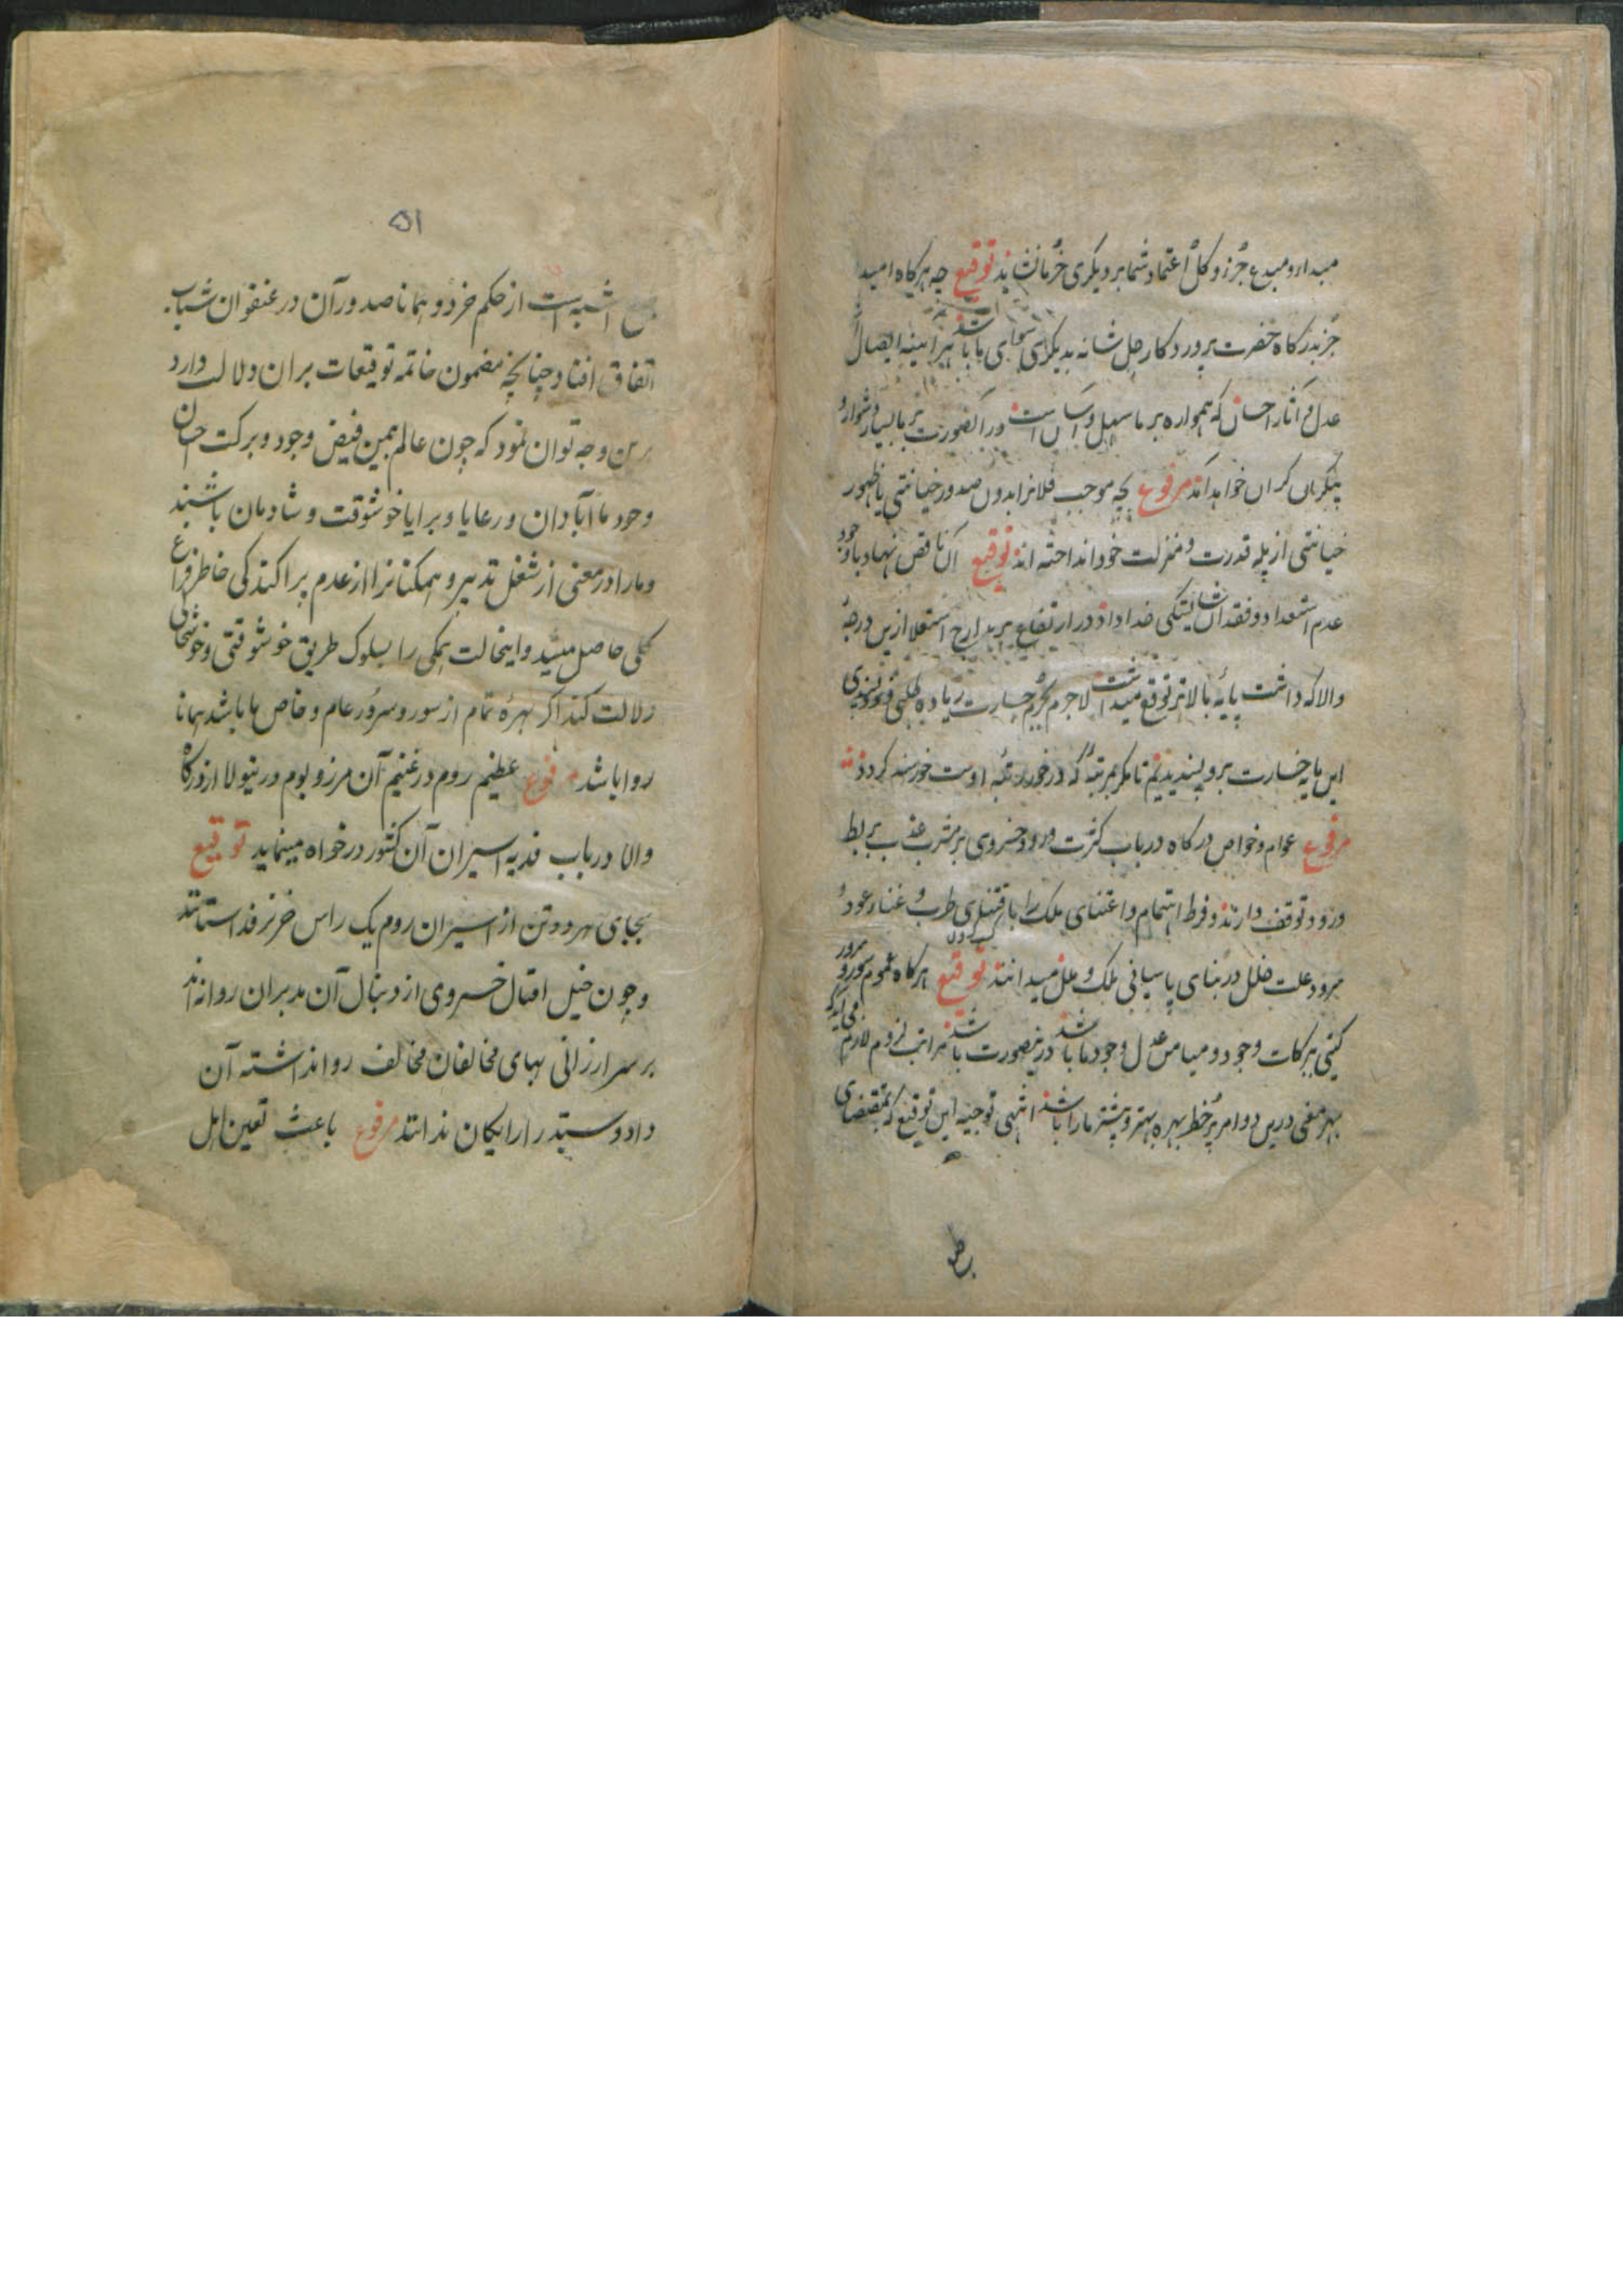 مبدا و مبدع جزو و کل اعتماد شما بر دیگری خرمانشاید توقیع چه هرگاه امید
جز بدرگاه حضرت پروردگار جل شانه بدیگری سوای ما باشد هرآینه ایصال
عدل و آثار احسان که همواره بر ما سهل و آسان است در آنصورت بر ما بسیار دشوار و
بیکران گران خواهد آمد مرفوع بچه موجب فلانرا بدون صدور خیانتی یا ظهور
خیانتی از پله قدرت و منزلت خود انداخته اند توقیع آن ناقص نهاد با وجود
عدم استعداد و فقدان شایستگی خداداد در ارتفاع بر مدارج استعلا ازین درجه
والا که داشت پایه بالاتر توقع میداشت لاجرم بجرم جسارت زیاده طلبی و خودپسندی
این پایه خسارت برو پسندیدیم تا مگر بمرتبه که درخور رتبه اوست خورسند گردد
مرفوع عوام و خواص درگاه در باب کثرت ورود خسروی بر مشرب عذب بربط
و رود توقف دارند و فرط اهتمام و اعتنای ملک را با قتضای طرب و غناء عود و
سرود علت خلل در بنای پاسبانی ملک و ملل میدانند توقیع هرگاه عموم سور و سرور
گیتی ببرکات وجود و میامن عدل وجود ما باشد درینصورت باشد مراتب لزوم لازم می آید که
بهر معنی درین دو امر پر خطر بهره بهتر و بیشتر ما را باشد انتهی توجیه این توقیع که بمقتضای
بر
۵۱
اشبه است از حکم خرد و همانا صدور آن در عنفوان شباب
اتفاق افتاد چنانچه مضمون خاتمه توقیعات بران دلالت دارد
برین وجه توان نمود که چون عالم بیمن فیض وجود و برکت احسان
وجود ما آبادان و رعایا و برایا خوشوقت و شادمان باشند
و مارا در معنی از شغل تدبیر و همگنانرا از عدم پراکندگی خاطر فراغ
کلی حاصل میشد و اینحالت همگی را بسلوک طریق خوشوقتی و خوشحالی
دلالت کند اگر بهره تمام از سور و سرور عام و خاص ما باشد همانا
روا باشد مرفوع عظیم روم در غنیم آن مرز و بوم درینولا از درگاه
والا در باب فدیه اسیران آن کشور درخواه مینماید توقیع
بجای هر دو تن از اسیران روم یک راس خر نر فدا ستانند
و چون خیل اقبال خسروی از دنبال آن مدبران روانه اند
بر سر ارزانی بهای مخالفان مخالف روا نداشته آن
داد و ستد را رایگان ندانند مرفوع باعث تعین اهل